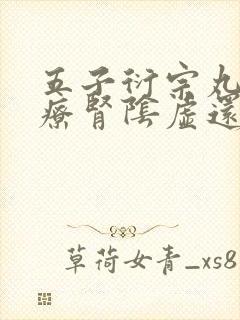 五子衍宗丸
療腎陰虛還
草荷女青_xs8